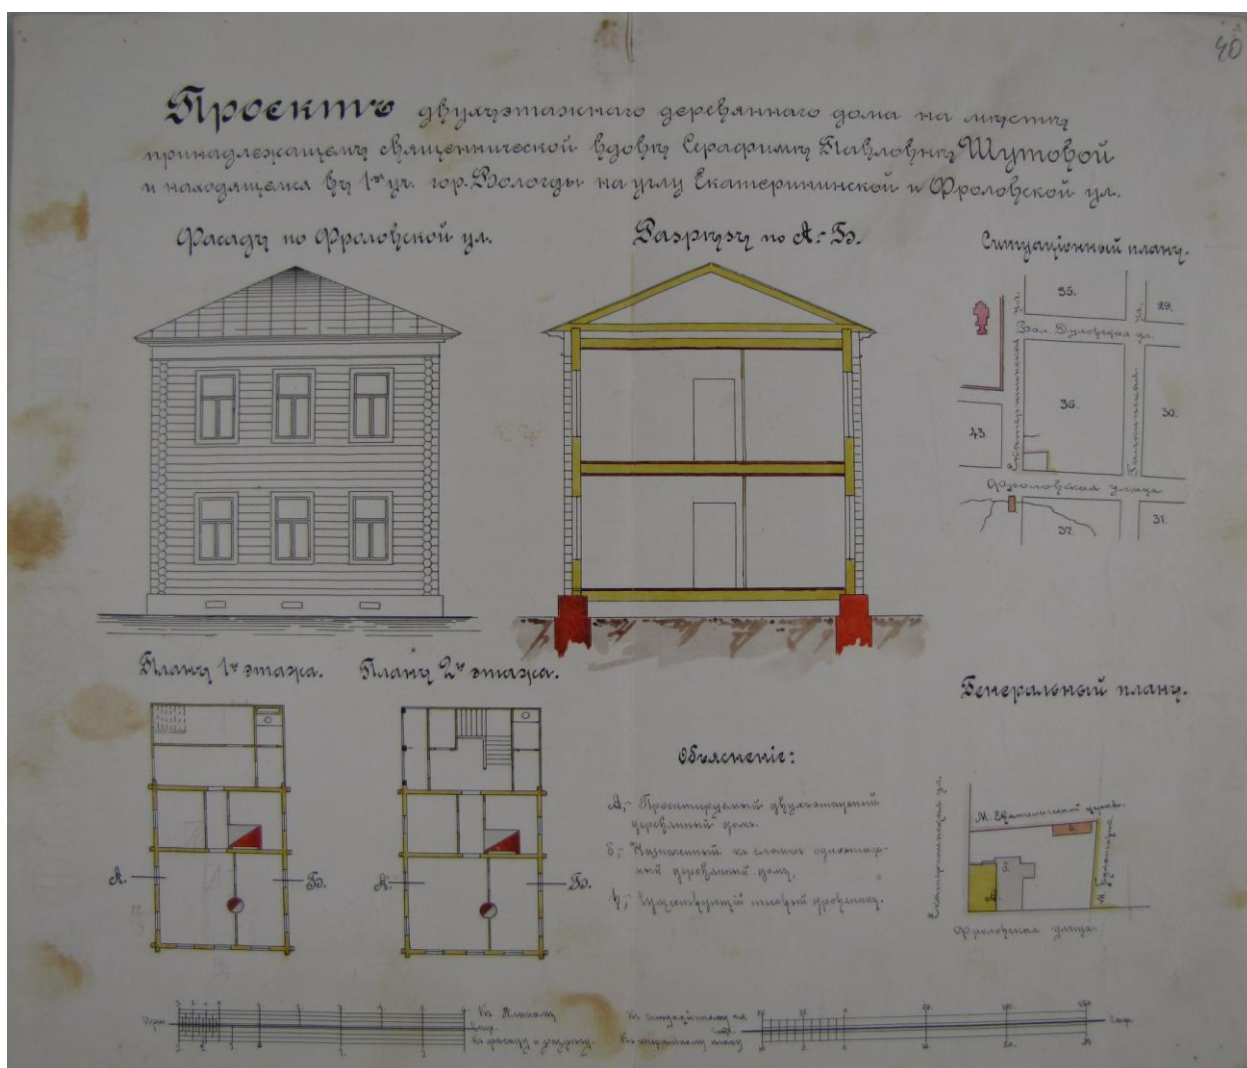 40
Проектъ двухъэтажнаго деревяннаго дома на мѣстѣ
принадлежащемъ священнической вдовѣ Серафимѣ Павловнѣ Шутовой
и находящемся въ 1ой уч. гор. Вологды на углу Екатерининской и Фроловской ул.
Фасадъ по Фроловской ул.
Разрѣзъ по А.-Б.
Ситуаціонный планъ.
95.
29.
Екатерининская ул.
ул.
36.
30.
43.
Фроловская улица
37.
31.
Планъ 1го этажа.
Планъ 2го этажа.
А.
Б.
А.
Б.
Генеральный планъ.
Объясненіе:
А,- Проектируемый двухъэтажный
деревянный домъ.
б,- Назначенный къ сломкѣ одноэтаж-
ный деревянный домъ,
в,- Существующій дровяникъ.
Екатерининская ул.
М.
А.
б.
в.
Фроловская улица
Къ планамъ
Саж.
Къ фасаду и разрѣзу.
Къ ситуаційному пл.
Къ генеральному плану